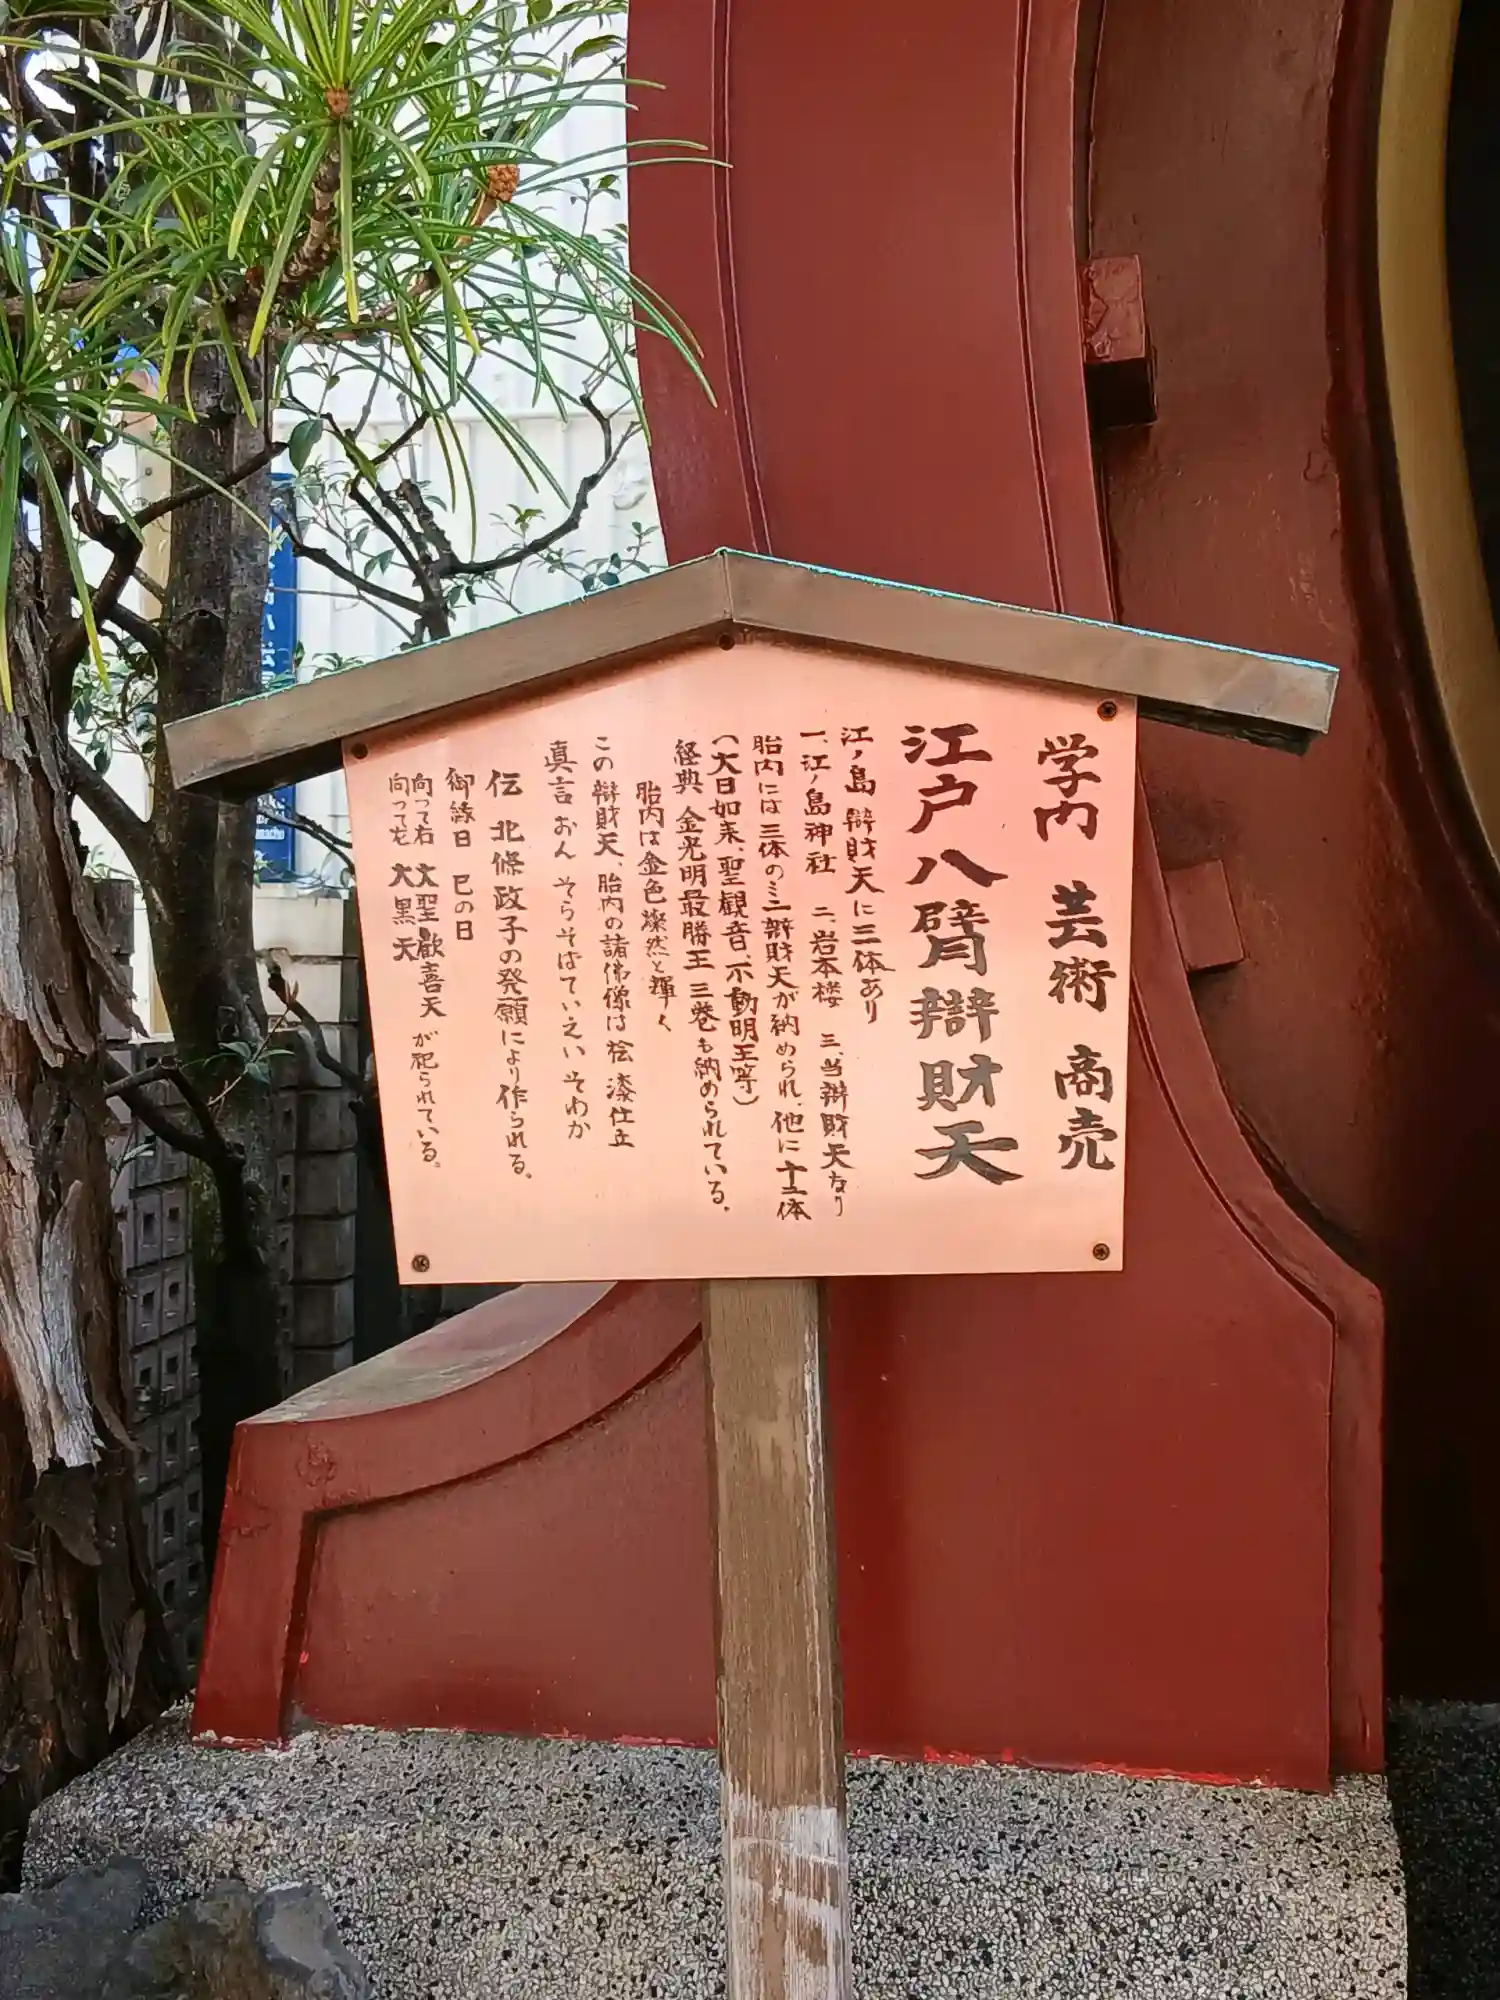 学内 芸術 商売
江戸八臂辯財天
江ノ島辯財天に三体あり
一、江ノ島神社 二、岩本楼 三、当辯財天なり
胎内には三体のミニ辯財天が納められ、他に十二体
(大日如来、聖観音、不動明王等)
経典 金光明最勝王 三巻も納められている。
胎内は金色燦然と輝く
この辯財天、胎内の諸佛像は桧 漆仕立
真言 おん そらそばていえい そわか
伝 北條政子の発願により作られる。
御縁日 巳の日
向って右 大聖歓喜天 が祀られている。
向って左 大黒天